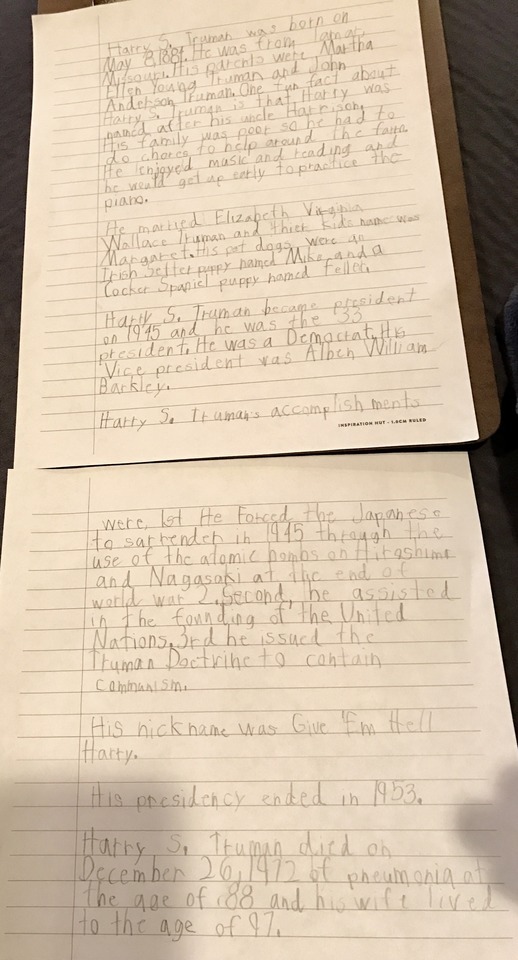 Harry S. Truman was born on
May 8, 1884. He was from Lamar,
Missouri. His parents were Martha
Ellen Young Truman and John
Anderson Truman. One fun fact about
Harry S. Truman is that Harry was
named after his uncle Harrison.
His family was poor so he had to
do chores to help around the farm.
He enjoyed music and reading and
he would get up early to practice the
piano.
He married Elizabeth Virginia
Wallace Truman and thier kids name was
Margaret. His pet dogs were an
Irish Setter puppy named Mike and a
Cocker Spaniel puppy named Feller.
Harry S. Truman became president
on 1945 and he was the 33
president. He was a Democrat. His
Vice president was Alben William
Barkley.
Harry S. Truman's accomplishments
INSPIRATION HUT - 1.0CM RULED
were, 1st He Forced the Japanese
to surrender in 1945 through the
use of the atomic bombs on Hiroshima
and Nagasaki at the end of
world war 2. Second, he assisted
in the founding of the United
Nations. 3rd he issued the
Truman Doctrine to contain
communism.
His nickname was Give 'Em Hell
Harry.
His presidency ended in 1953.
Harry S. Truman died on
December 26, 1972 of pneumonia at
the age of 88 and his wife lived
to the age of 97.